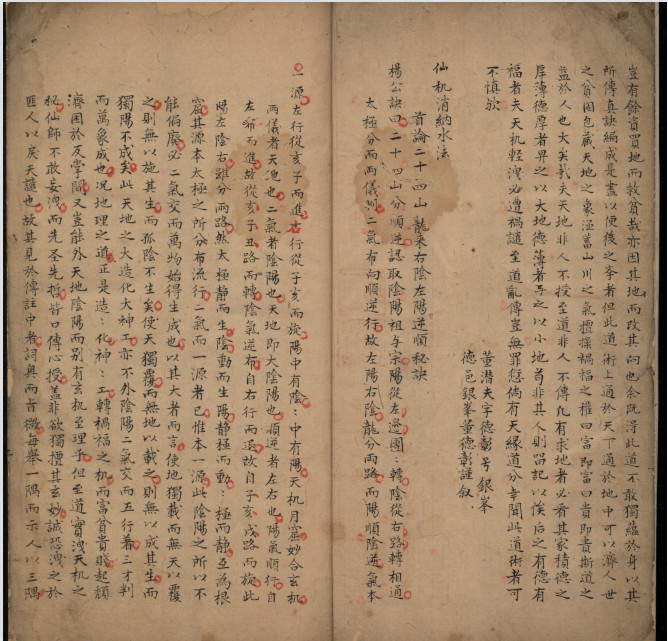 豈有餘資買地而救貧哉亦因其地而改其向也余既得此道不敢獨蘊於身以其
所傳真訣編成是書以便後之學者但此道術上通於天下通於地中可以濟人世
之貧困包藏天地之象涵蓄山川之氣擅操禍福之權曰富即富曰貴即貴斯道之
益於人也大矣哉夫天地非人不授至道非人不傳凡有求地者必看其家積德之
厚薄德厚者畀之以大地德薄者与之以小地苟非其人則當記以俟后之有德有
福者夫天机輕洩必遭禍譴至道亂傳豈無罪愆倘有天緣道分幸聞此道術者可
不慎歟
董潛夫字德彰号銀峯
德邑銀峯董德彰謹叙
仙机消納水法
首論二十四山龍来右陰左陽逆順秘訣
楊公訣曰二十四山分順逆認取陰陽祖与宗陽從左邊團:轉陰從右路轉相通
太極分而兩儀判二氣布向順逆行故左陽右陰龍分兩路而陽順陰逆氣本
一源左行從亥子而進右行從子亥而旋陽中有陰:中有陽天机月窟妙合玄机
兩儀者天地也二氣者陰陽也天地即大陰陽也順逆者左右也陽氣順行自
左布而進故從亥子丑路而轉陰氣逆布自右行而退故自子亥戌路而旋此
陽左陰右雖分兩路然太極靜而生陰動而生陽靜極而動:極而靜互為根
窟其源本太極之所分布流行二氣而一源者已惟本一源此陰陽之所以不
能偏廢必二氣交而萬物始得生成也以其大者而言使地獨載而無天以覆
之則無以施其生而孤陰不生矣使天獨覆而無地以載之則無以成其生而
獨陽不成矣此天地之大造化大神工亦不外陰陽二氣交而五行著三才判
而萬象成也况地理之道正是造:化神:工轉禍福之机而富貧貴賤起頹
濟困於反掌間又豈能外天地陰陽而別有玄机至理乎但至道實洩天机之
秘仙師不敢妄洩而先圣先哲皆口傳心授蓋非欲獨擅其玄妙誠恐洩之於
匪人以戾天譴也故其見於傳註中者詞奥而旨微每舉一隅而示人以三隅